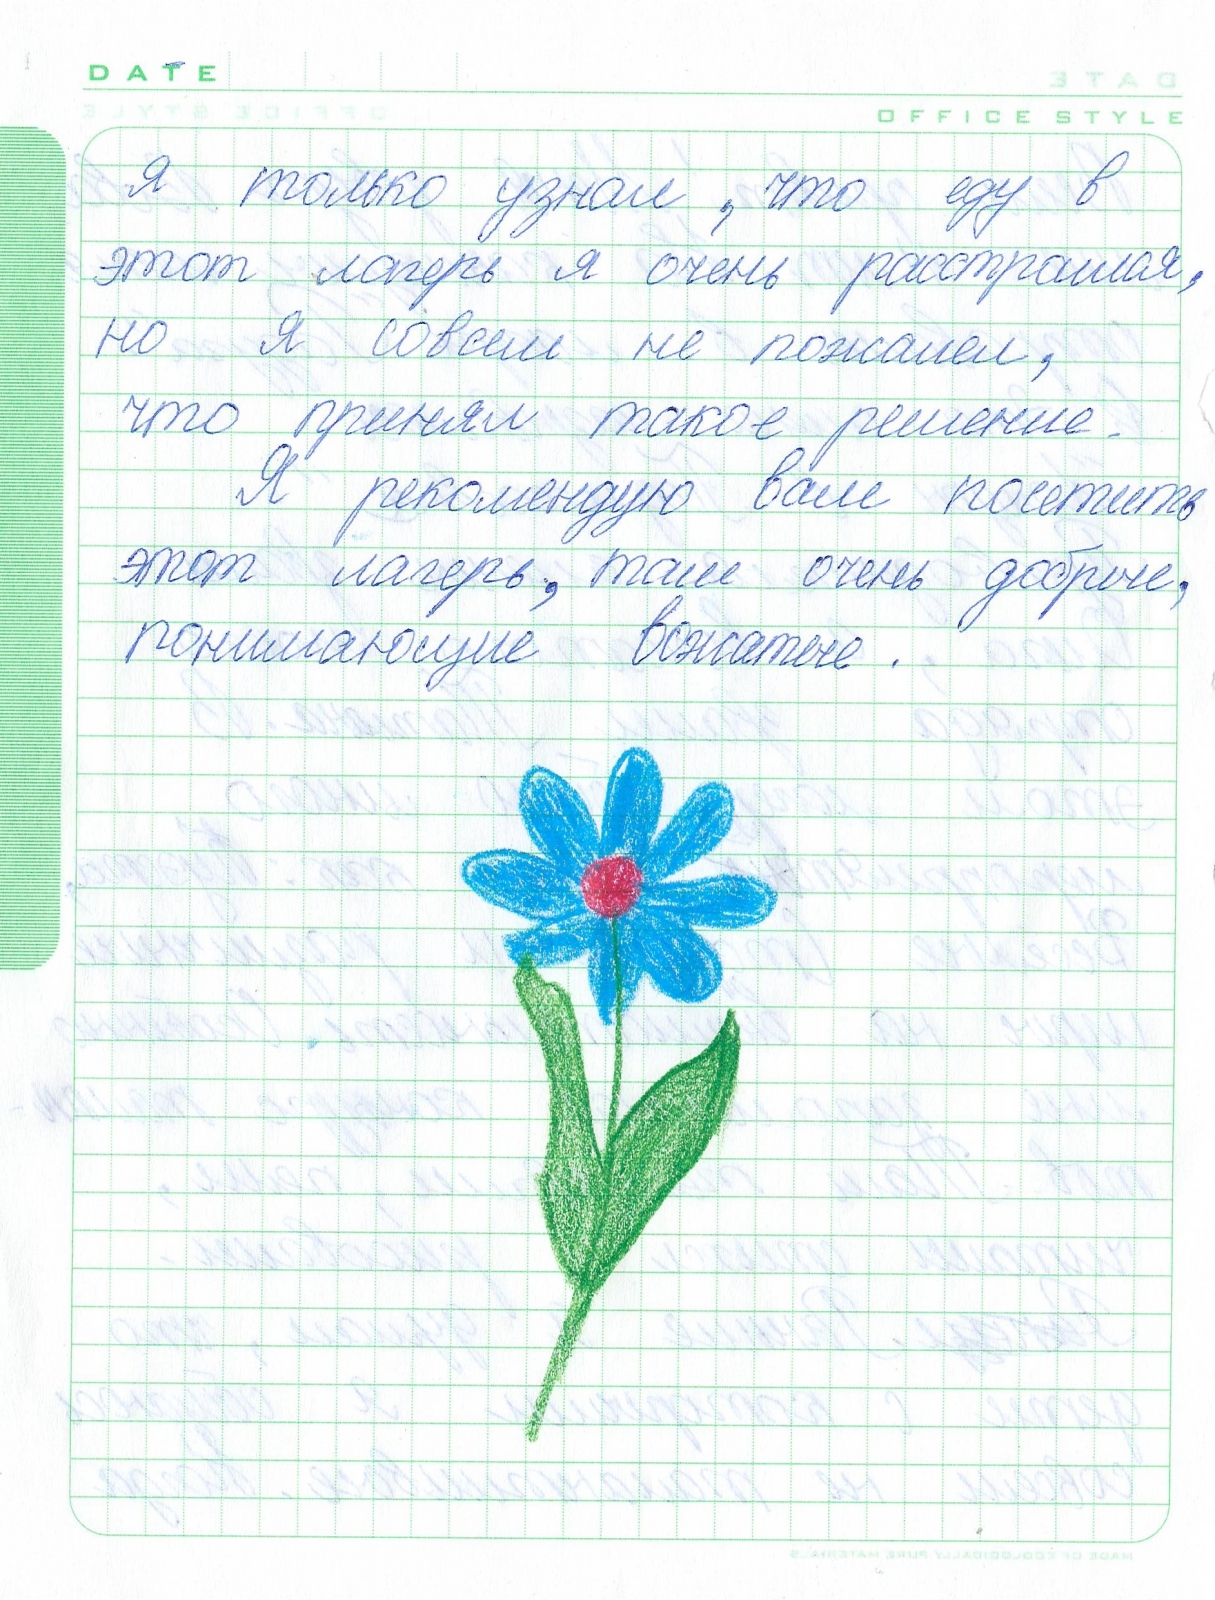 DATE
OFFICE STYLE
Я только узнал, что еду в
этот лагерь я очень расстраился,
но я совсем не пожалел,
что принял такое решение.
Я рекомендую вам посетить
этот лагерь, там очень добрые,
понимающие вожатые.